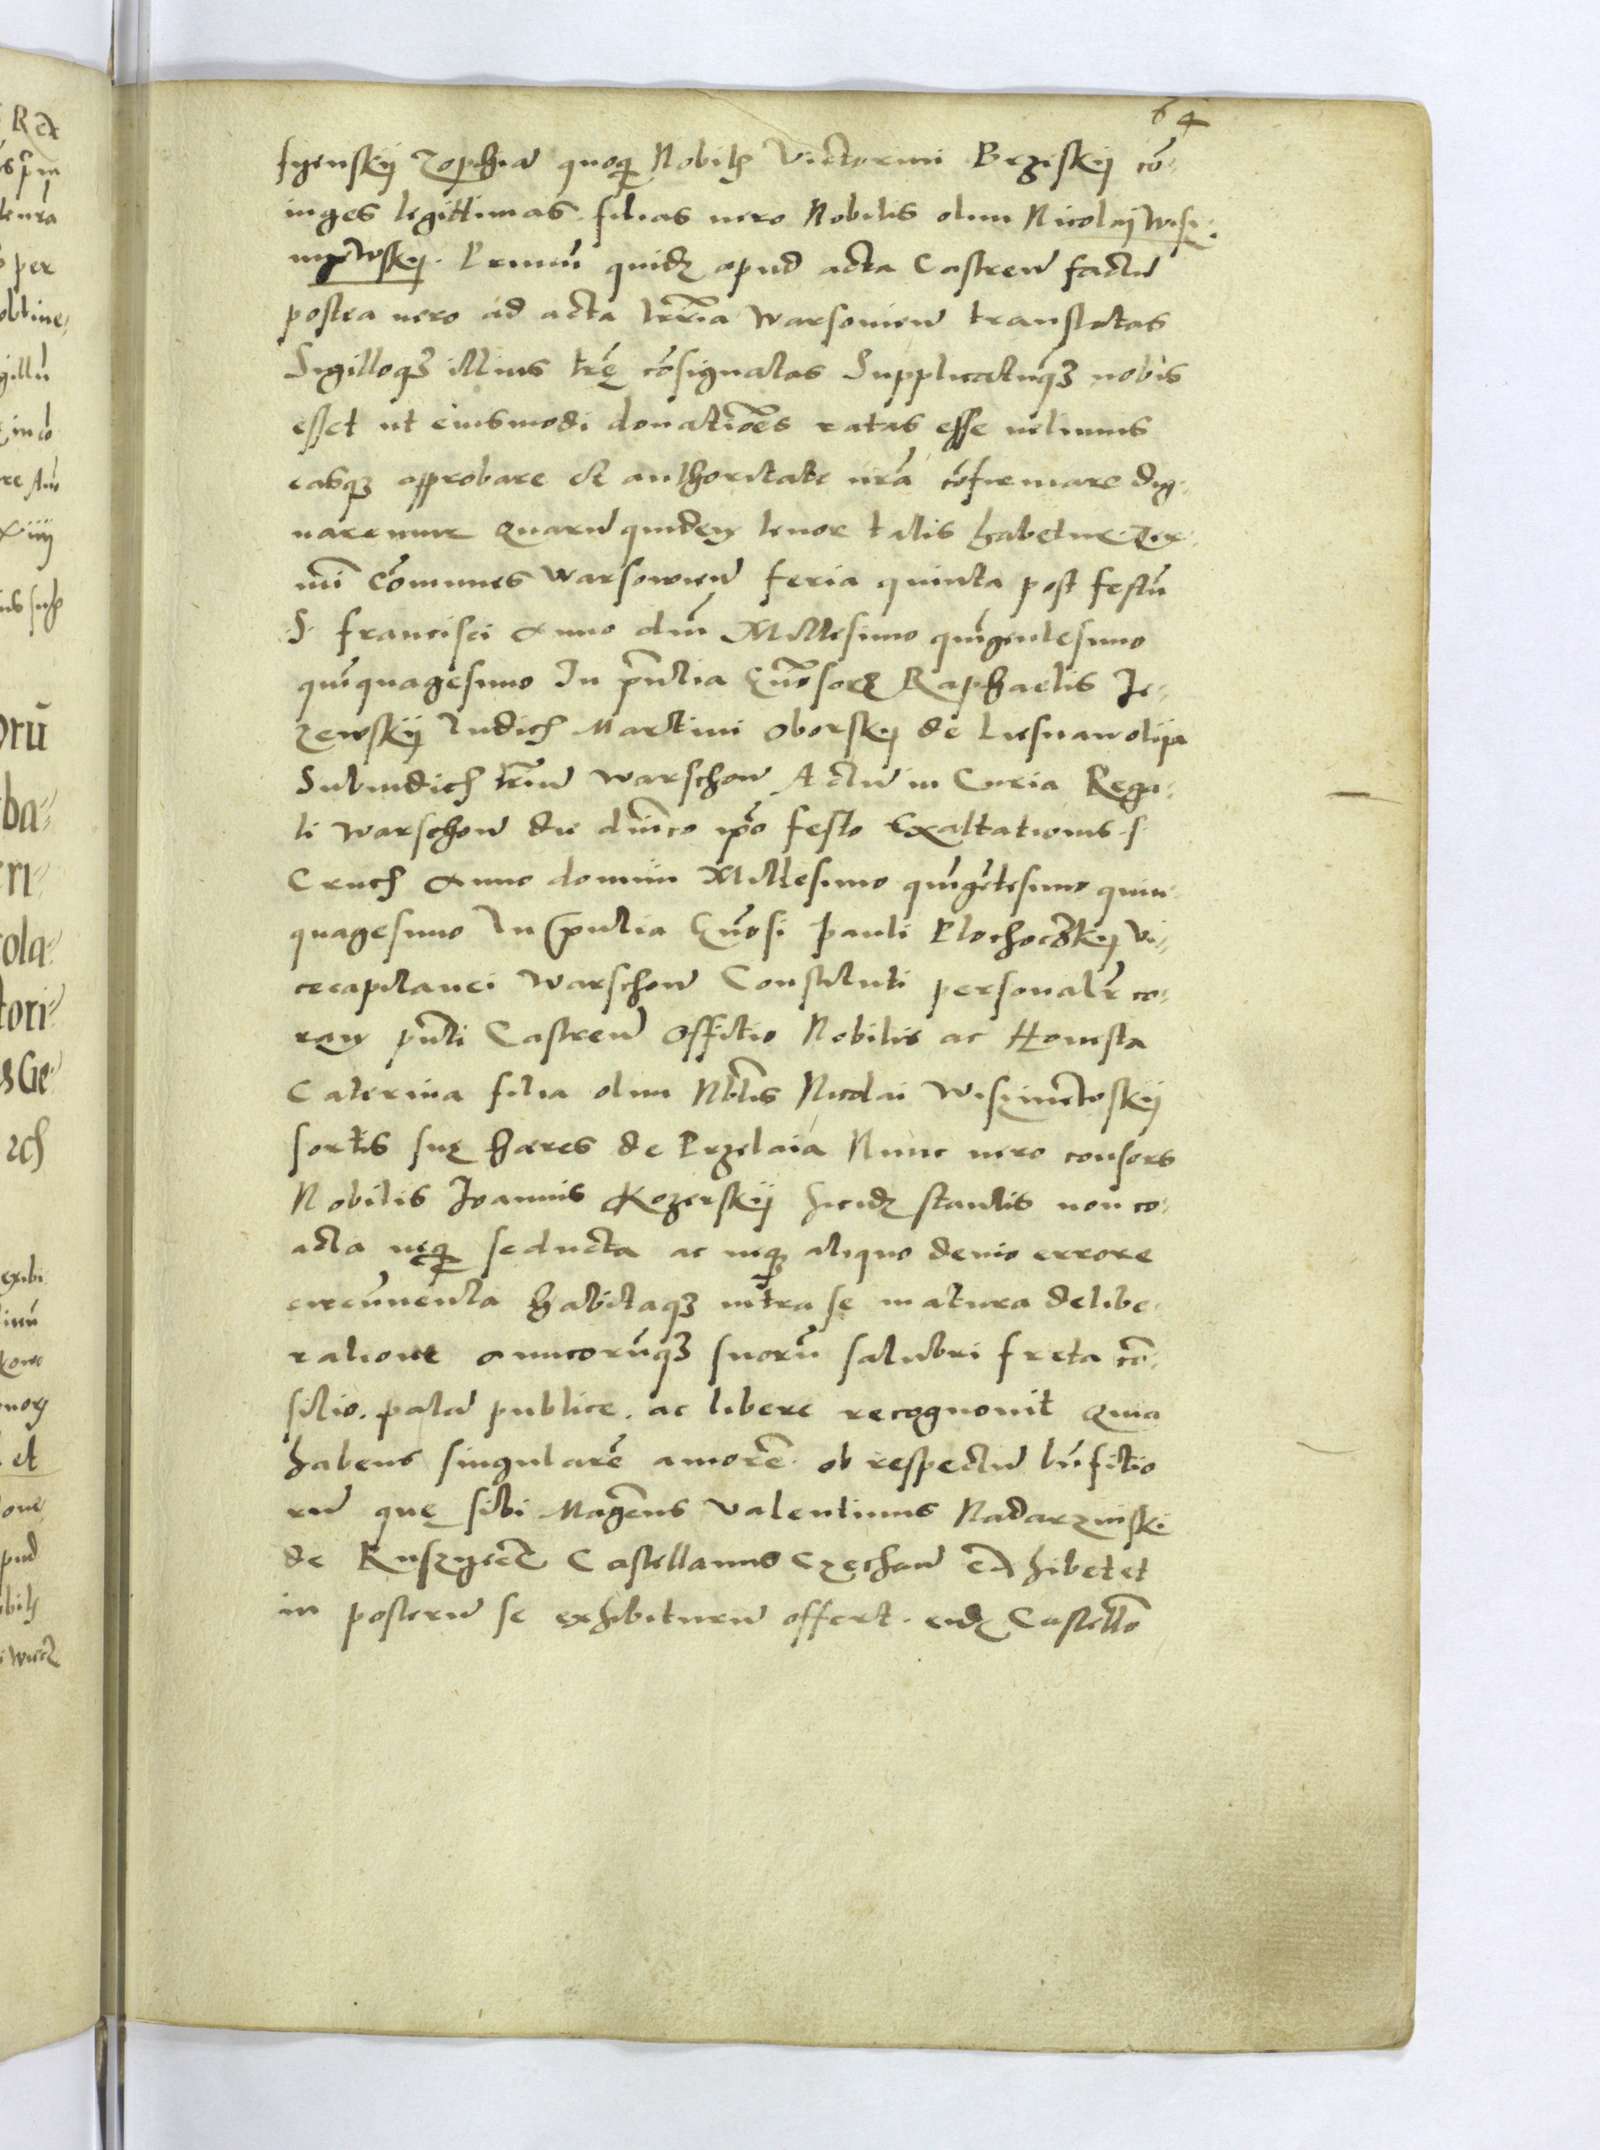 64
syenskij Zophia quoq Nobilꝭ Victorini Brziskij cō-
iuges legittimas filias uero Nobilis olim Nicolaj Wisi-
mietwskij. Primū quidꝫ apud acta Castren̄ factas
postea uero ad acta trr̄ia Warsouien̄ translatas
Sigilloqꝫ illius trę̄ cōsignatas Supplicatūqꝫ nobis
esset ut eiusmodi donatiōes ratas esse uelimus
easqꝫ approbare et authoritate nr̄a cōfirmare dig-
naremur Quarū quidem tenor talis habetur Ter-
mī Cōmunes Warsouien̄ feria quinta post festū
S. francisci Anno dn̄i Millesimo quīgentesimo
quīquagesimo In pn̄tia Gn̄osorꝫ Raphaelis Je-
zewskij Iudicꝭ Martini Oborskij de Liesnawolija
Subiudicꝭ trr̄iū Warschow̄ Actū in Curia Rega-
li Warschow̄ die dn̄ico ip̄o festo Exaltationis S
Crucꝭ Anno domini Millesimo quīgētesimo quin-
quagesimo In pn̄tia Gn̄osi Pauli Plochoczkij Vi-
cecapitanei Warschow̄ Constituti personalr̄ co-
ram pn̄ti Castren̄ Offitio Nobilis ac Honesta
Caterina filia olim Nbl̄is Nicolai Wisimietoskij
sortis suę haeres de Przelaia Nunc uero consors
Nobilis Joannis Kozerskij hicidꝫ stantis non co-
acta neqꝫ seducta ac neqꝫ aliquo deuio errore
circūuenta habitaqꝫ intra se matura delibe-
ratione amicorūqꝫ suorū salubri freta cō-
silio. palā publice. ac libere recognouit Quia
habens singularē amorē. ob respectū bn̄fitio
rū quę sibi Magcūs Valentinus Nadarzinski
de Ruszyecz Castellanus Czechow̄ exhibet et
in posterū se exhibiturū offert. eidꝫ Castellō